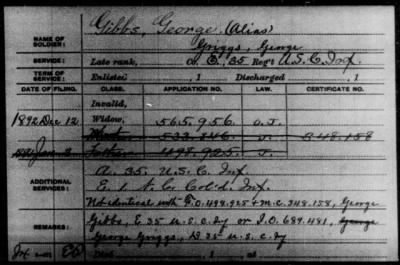 NAME OF SOLDIER: Gibbs, George, (Alias)
Griggs, George
SERVICE: Late rank, Co. E, 35 Reg't U.S.C. Inf.
TERM OF SERVICE: Enlisted , 1 Discharged , 1
DATE OF FILING. CLASS. APPLICATION NO. LAW. CERTIFICATE NO.
Invalid,
1892 Dec 12 Widow, 565.956. O.J.
Minor, 533.846. J. 348.158
Jan 3 Father 498.925 J.
ADDITIONAL SERVICES: A. 35. U.S.C. Inf.
E. 1 N.C. Col'd. Inf.
REMARKS: Not identical with F.O. 498.925 + M.C. 348.158, George
Gibbs, E 35 U.S.C. Iy or I.O. 689.481, George
George Griggs, D 35 U.S.C. Iy
Died , 1 , at